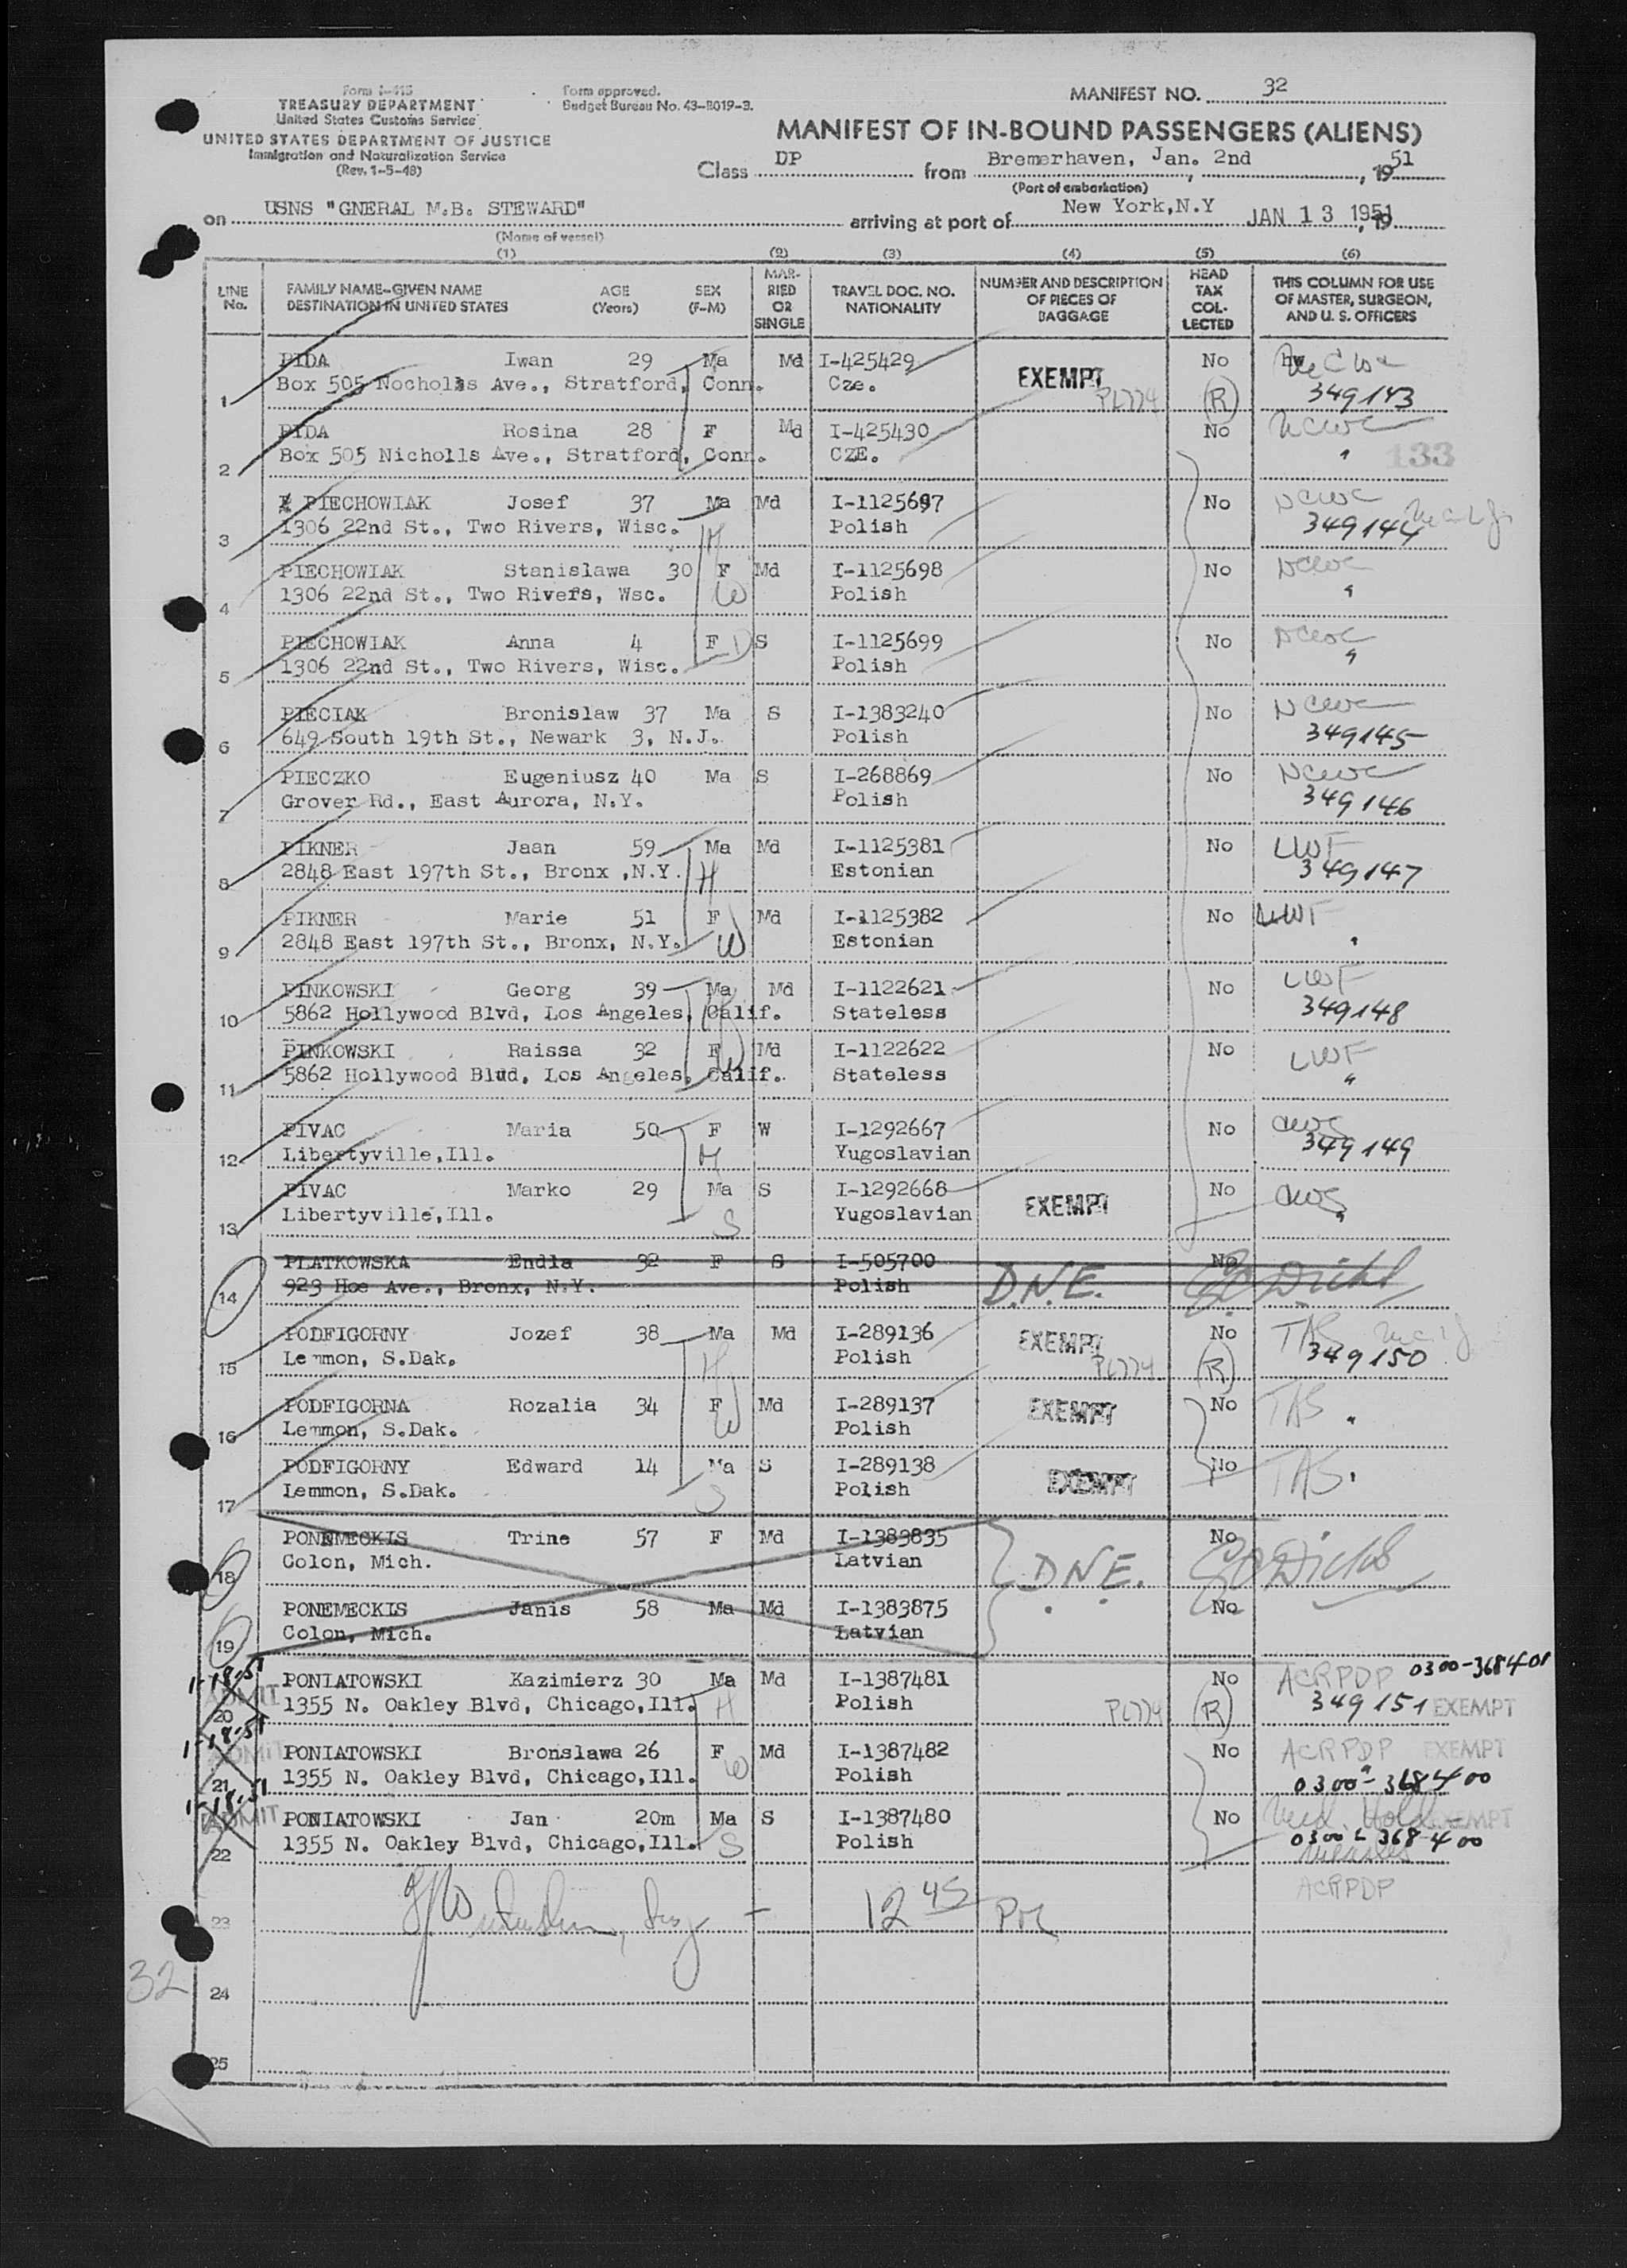 Form I-415
TREASURY DEPARTMENT
United States Customs Service
UNITED STATES DEPARTMENT OF JUSTICE
Immigration and Naturalization Service
(Rev. 1-5-48)
Form approved.
Budget Bureau No. 43-R019-3.
MANIFEST NO. 32
MANIFEST OF IN-BOUND PASSENGERS (ALIENS)
Class DP from Bremerhaven, Jan. 2nd, 1951
(Port of embarkation)
on USNS "GNERAL M.B. STEWARD" arriving at port of New York,N.Y JAN 13 1951, 19
(Name of vessel)
(1) (2) (3) (4) (5) (6)
LINE No.
FAMILY NAME-GIVEN NAME
DESTINATION IN UNITED STATES
AGE (Years)
SEX (F-M)
MARRIED OR SINGLE
TRAVEL DOC. NO. NATIONALITY
NUMBER AND DESCRIPTION OF PIECES OF BAGGAGE
HEAD TAX COLLECTED
THIS COLUMN FOR USE OF MASTER, SURGEON, AND U. S. OFFICERS
PIDA Iwan 29 Ma Md I-425429 EXEMPT No
1 Box 505 Nocholls Ave., Stratford, Conn. Cze. PL774 (R) 349143
PIDA Rosina 28 F Md I-425430 No NCWC
2 Box 505 Nicholls Ave., Stratford, Conn. CZE. " 133
PIECHOWIAK Josef 37 Ma Md I-1125697 No NCWC
3 1306 22nd St., Two Rivers, Wisc. H Polish 349144
PIECHOWIAK Stanislawa 30 F Md I-1125698 No NCWC
4 1306 22nd St., Two Rivers, Wsc. W Polish "
PIECHOWIAK Anna 4 F D S I-1125699 No NCWC
5 1306 22nd St., Two Rivers, Wisc. Polish "
PIECIAK Bronislaw 37 Ma S I-1383240 No NCWC
6 649 South 19th St., Newark 3, N.J. Polish 349145
PIECZKO Eugeniusz 40 Ma S I-268869 No NCWC
7 Grover Rd., East Aurora, N.Y. Polish 349146
PIKNER Jaan 59 Ma Md I-1125381 No LWF
8 2848 East 197th St., Bronx ,N.Y. H Estonian 349147
PIKNER Marie 51 F Md I-1125382 No LWF
9 2848 East 197th St., Bronx, N.Y. W Estonian "
PINKOWSKI Georg 39 Ma Md I-1122621 No LWF
10 5862 Hollywood Blvd, Los Angeles, Calif. H Stateless 349148
PINKOWSKI Raissa 32 F Md I-1122622 No LWF
11 5862 Hollywood Blud, Los Angeles, Calif. W Stateless "
PIVAC Maria 50 F W I-1292667 No CWS
12 Libertyville,Ill. M Yugoslavian 349149
PIVAC Marko 29 Ma S I-1292668 EXEMPT No CWS
13 Libertyville,Ill. S Yugoslavian "
PLATKOWSKA Endla 32 F S I-505700 No
14 923 Hoe Ave., Bronx, N.Y. Polish D.N.E.
PODFIGORNY Jozef 38 Ma Md I-289136 EXEMPT No TAS
15 Lemmon, S.Dak. H Polish PL774 (R) 349150
PODFIGORNA Rozalia 34 F Md I-289137 EXEMPT No TAS "
16 Lemmon, S.Dak. W Polish
PODFIGORNY Edward 14 Ma S I-289138 EXEMPT No TAS "
17 Lemmon, S.Dak. S Polish
PONEMECKIS Trine 57 F Md I-1383835 No
18 Colon, Mich. Latvian D.N.E.
PONEMECKIS Janis 58 Ma Md I-1383875 No
19 Colon, Mich. Latvian
1-18-51 PONIATOWSKI Kazimierz 30 Ma Md I-1387481 No ACRPDP 0300-368401
ADMIT 20 1355 N. Oakley Blvd, Chicago,Ill. H Polish PL774 (R) 349151 EXEMPT
1-18-51 PONIATOWSKI Bronslawa 26 F Md I-1387482 No ACRPDP EXEMPT
ADMIT 21 1355 N. Oakley Blvd, Chicago,Ill. W Polish 0300-368400
1-18-51 PONIATOWSKI Jan 20m Ma S I-1387480 No Med. Hold EXEMPT
ADMIT 22 1355 N. Oakley Blvd, Chicago,Ill. S Polish 0300-368400
Measles
ACRPDP
23 12 45 PM
32
24
25